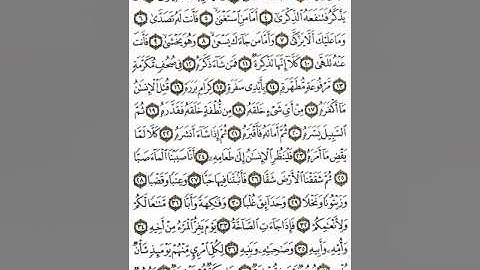 يَذَّكَّرُ فَتَنفَعَهُ ٱلذِّكْرَىٰٓ ۝٤ أَمَّا مَنِ ٱسْتَغْنَىٰ ۝٥ فَأَنتَ لَهُۥ تَصَدَّىٰ ۝٦
وَمَا عَلَيْكَ أَلَّا يَزَّكَّىٰ ۝٧ وَأَمَّا مَن جَآءَكَ يَسْعَىٰ ۝٨ وَهُوَ يَخْشَىٰ ۝٩ فَأَنتَ
عَنْهُ تَلَهَّىٰ ۝١٠ كَلَّآ إِنَّهَا تَذْكِرَةٌ ۝١١ فَمَن شَآءَ ذَكَرَهُۥ ۝١٢ فِي صُحُفٍ مُّكَرَّمَةٍ
۝١٣ مَّرْفُوعَةٍ مُّطَهَّرَةٍۭ ۝١٤ بِأَيْدِي سَفَرَةٍ ۝١٥ كِرَامٍۭ بَرَرَةٍ ۝١٦ قُتِلَ ٱلْإِنسَٰنُ
مَآ أَكْفَرَهُۥ ۝١٧ مِنْ أَيِّ شَيْءٍ خَلَقَهُۥ ۝١٨ مِن نُّطْفَةٍ خَلَقَهُۥ فَقَدَّرَهُۥ ۝١٩ ثُمَّ
ٱلسَّبِيلَ يَسَّرَهُۥ ۝٢٠ ثُمَّ أَمَاتَهُۥ فَأَقْبَرَهُۥ ۝٢١ ثُمَّ إِذَا شَآءَ أَنشَرَهُۥ ۝٢٢ كَلَّا لَمَّا
يَقْضِ مَآ أَمَرَهُۥ ۝٢٣ فَلْيَنظُرِ ٱلْإِنسَٰنُ إِلَىٰ طَعَامِهِۦٓ ۝٢٤ أَنَّا صَبَبْنَا ٱلْمَآءَ صَبًّا
۝٢٥ ثُمَّ شَقَقْنَا ٱلْأَرْضَ شَقًّا ۝٢٦ فَأَنۢبَتْنَا فِيهَا حَبًّا ۝٢٧ وَعِنَبًا وَقَضْبًا ۝٢٨
وَزَيْتُونًا وَنَخْلًا ۝٢٩ وَحَدَآئِقَ غُلْبًا ۝٣٠ وَفَٰكِهَةً وَأَبًّا ۝٣١ مَّتَٰعًا لَّكُمْ
وَلِأَنْعَٰمِكُمْ ۝٣٢ فَإِذَا جَآءَتِ ٱلصَّآخَّةُ ۝٣٣ يَوْمَ يَفِرُّ ٱلْمَرْءُ مِنْ أَخِيهِ ۝٣٤
وَأُمِّهِۦ وَأَبِيهِ ۝٣٥ وَصَٰحِبَتِهِۦ وَبَنِيهِ ۝٣٦ لِكُلِّ ٱمْرِئٍ مِّنْهُمْ يَوْمَئِذٍ شَأْنٌ